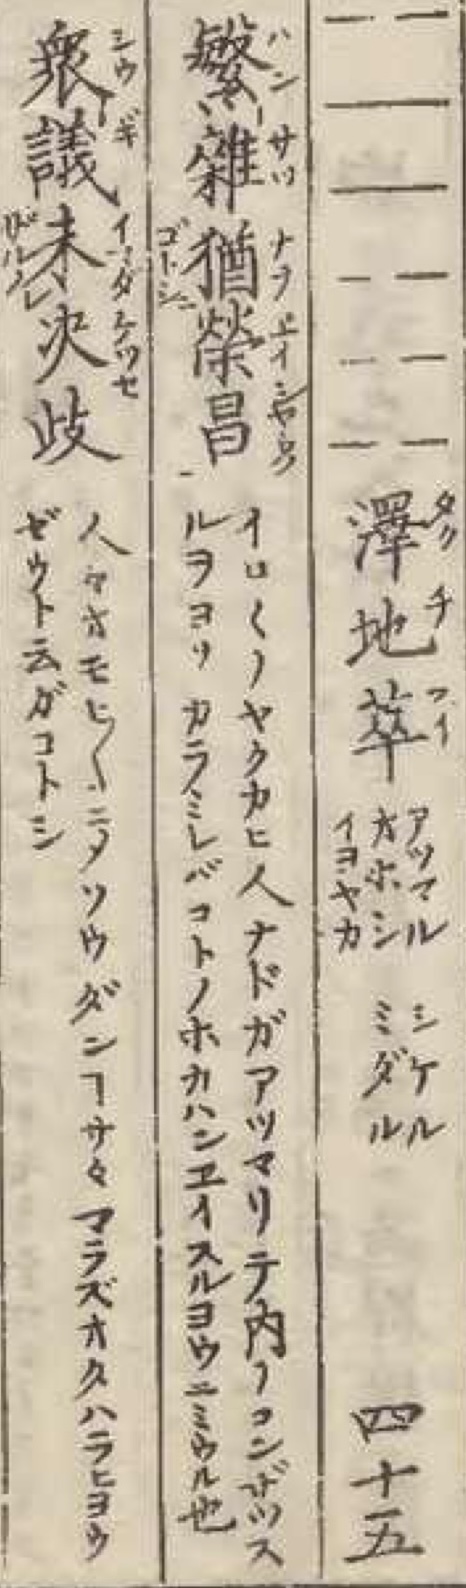 澤地萃 タクチスイ アツマル オホシ イヨヤカ シケル ミダル 四十五
繁雑猶榮昌 ハンサツナヲヱイシヤウノゴトシ
イロ〳〵ノヤクカヒ人ナドガアツマリテ内ノコンザツス
ルヲヨリカラミレバコトノホカハンエイスルヨウニミウル也
衆議未决歧 シウギイマダケツセ
人々オモヒ〳〵ニノソウダンヿサ々マラズオクハラヒヨウ
ゼウト云ガコトシ